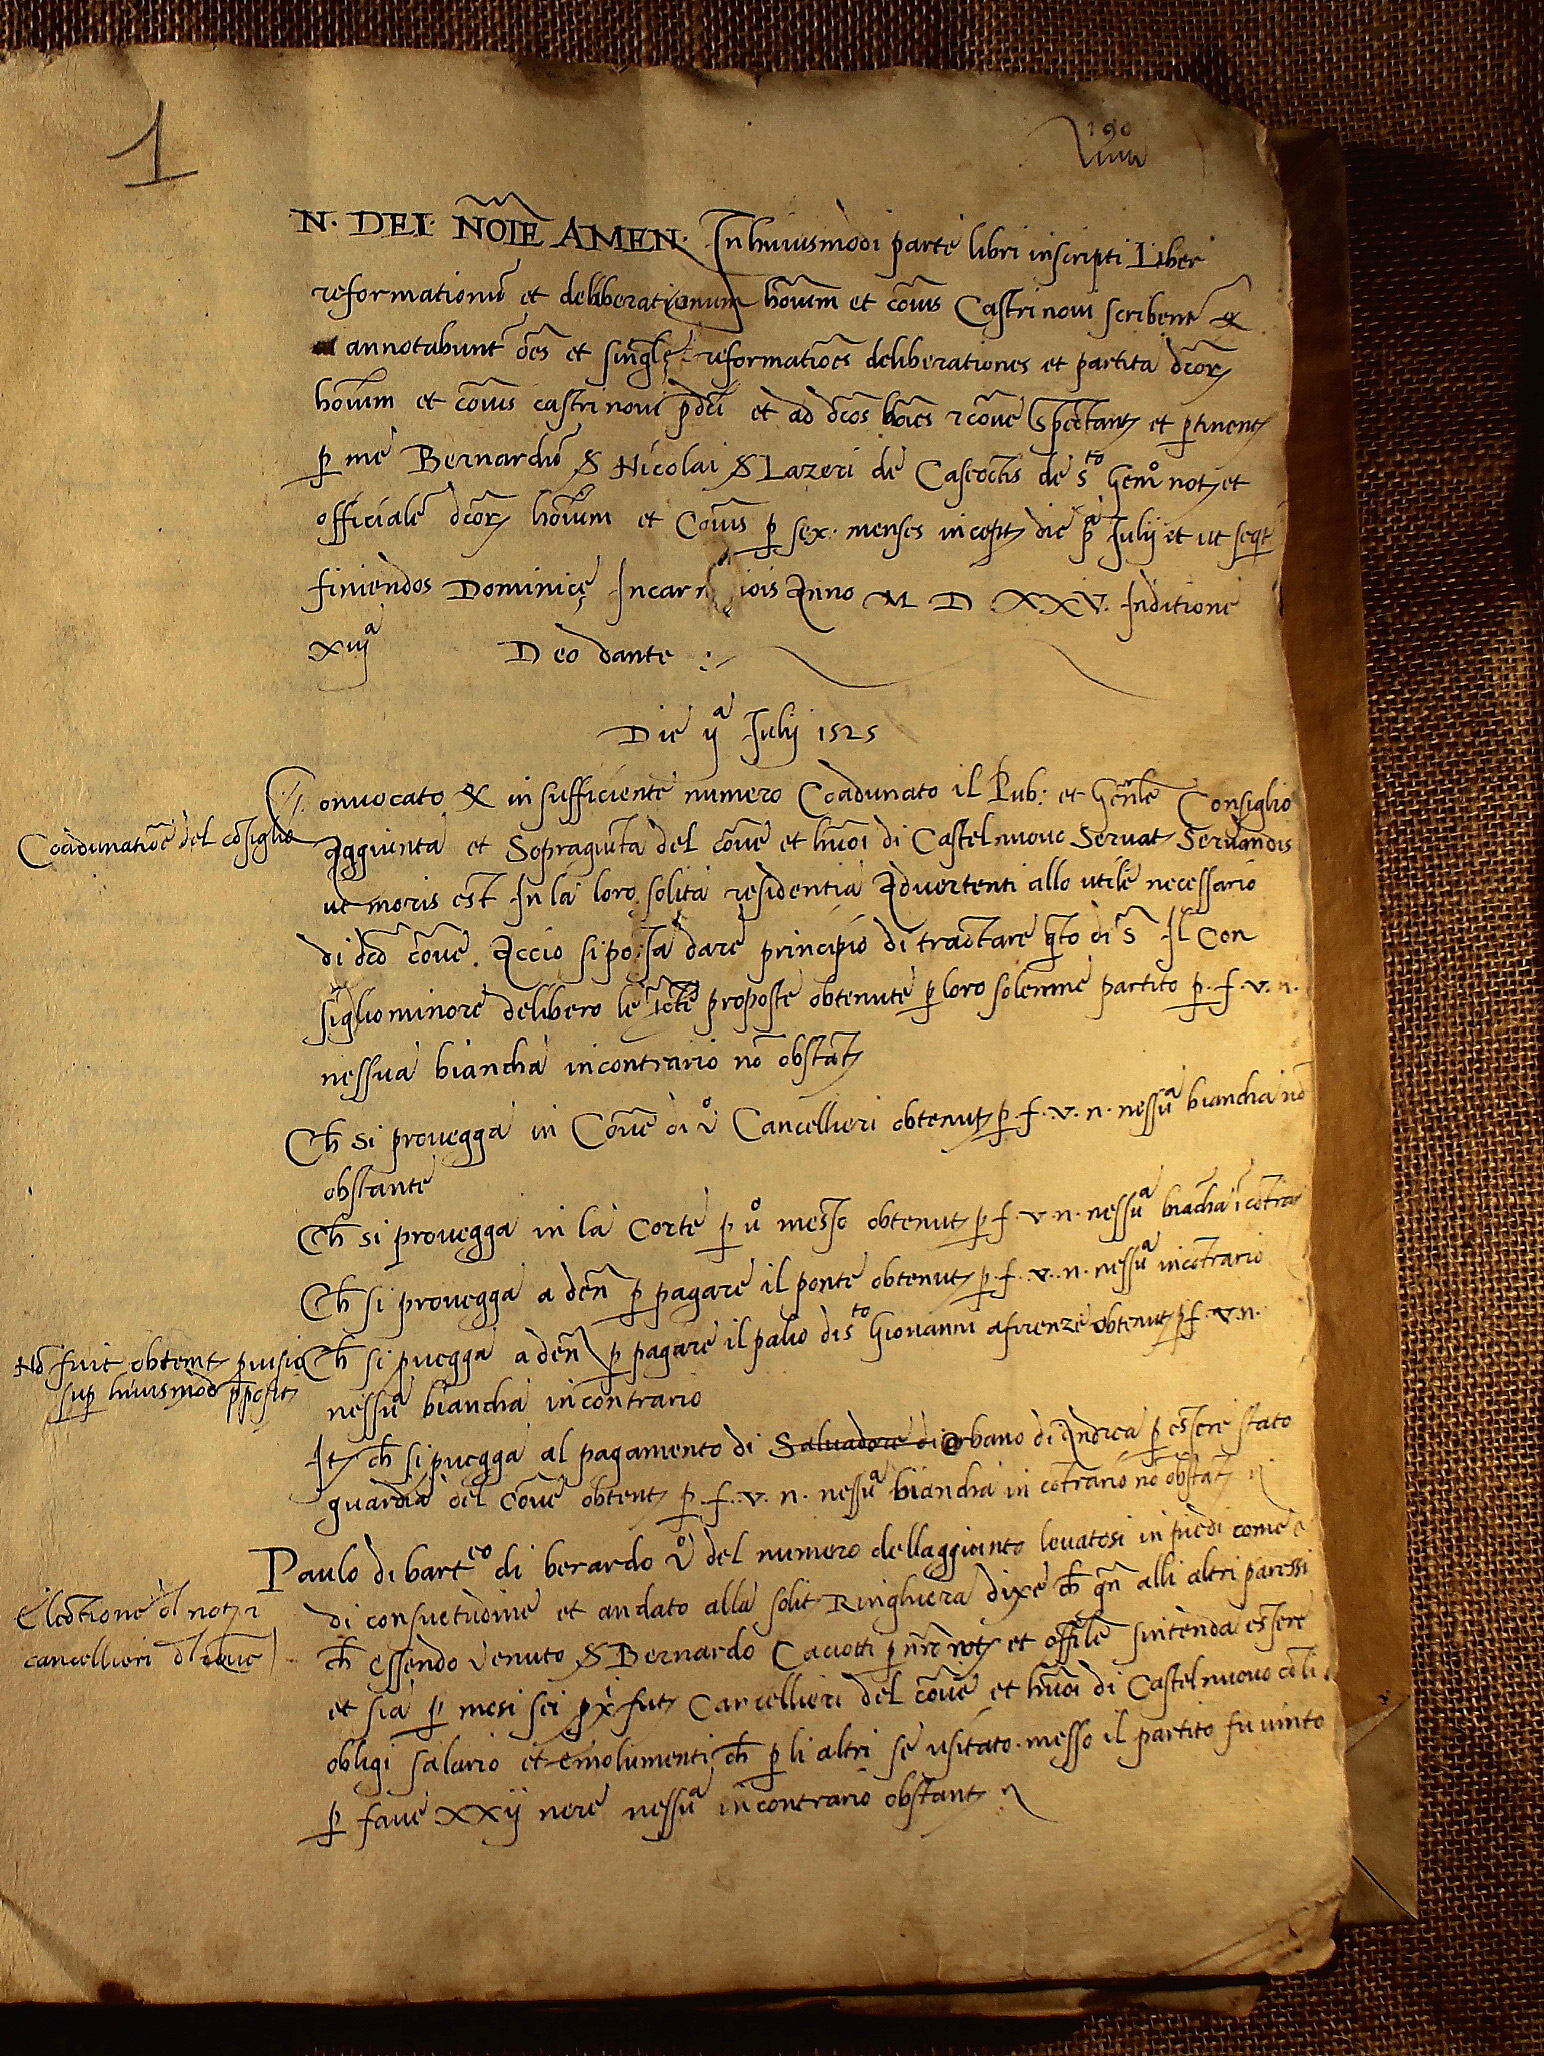 1
190
N. DEI. NOIE AMEN. In huiusmodi parte libri inscripti Liber
reformationũ et deliberationum hõium et cõuis Castri noui scribent̃ &
annotabunt̃ oẽs et singlę reformatiões deliberationes et partita dc̃or
hoĩum et cõuis castri noui p̃dci et ad dc̃os hoĩes et cõue spectant et ptinent
p me Bernardũ S Nicolai S Lazeri de Casciottis de sto Gem̊ not et
officialẽ dc̃or hoĩum et Cõuis p sex menses incept die pª Julij et ut seqt̃
finiendos Dominicę Incarn iois Anno M D XXV. Inditione
xiijª Deo dante
Die ijª Julij 1525
Coadunatiõe del cõsiglio
Conuocato & in sufficiente numero Coadunato il Pub: et Gñle Consiglio
Aggiunta et Sopragiũta del cõue et hũoi di Castelnuouo Seruat Seruandis
ut moris est In la loro solita residentia Aduertenti allo utile necessario
di dc̃o cõue. Accio si possa dare principio di tractare qto di sª Il Con
siglio minore delibero le proposte obtenute p loro solemne partito p. f. v. n.
nessua biancha in contrario nõ obstat
Ch si prouegga in Cõue di ů Cancellieri obtenut p f. v. n. nessuª biancha nõ
obstante
Ch si prouegga in la Corte p ů messo obtenut p f. v. n. nessuª biãcha ĩ cõtrar
Ch si prouegga a deñ p pagare il ponte obtenut p. f. v. n. nessuª in cõtrario
Nõ fuit obtent puisio
sup huiusmodi pposit
Ch si puegga a deñ p pagare il palio di sto Giouanni a firenze obtenut p f. v. n.
nessuª biancha in contrario
It ch si puegga al pagamento di Saluadore di urbano di Andrea p essere stato
guardia del Cõue obtent p. f. v. n. nessuª biancha in cõtrario nõ obstat
Electione dl not i
cancellieri dl cõue
Paulo di barteo di berardo ů del numero dellaggiunto leuatosi in piedi come e
di consuetudine et andato alla solit Ringhiera dixe ch qñ alli altri paressi
ch essendo uenuto S Bernardo Caciotti p nr̃o not et offitle s'intenda essere
et sia p mesi sei px̃ fut Cancellieri del cõue et hũoi di Castelnuouo cõ li
obligi salario et emolumenti ch p li altri se usitato. messo il partito fu uinto
p faue XXij nere nessuª in contrario obstant